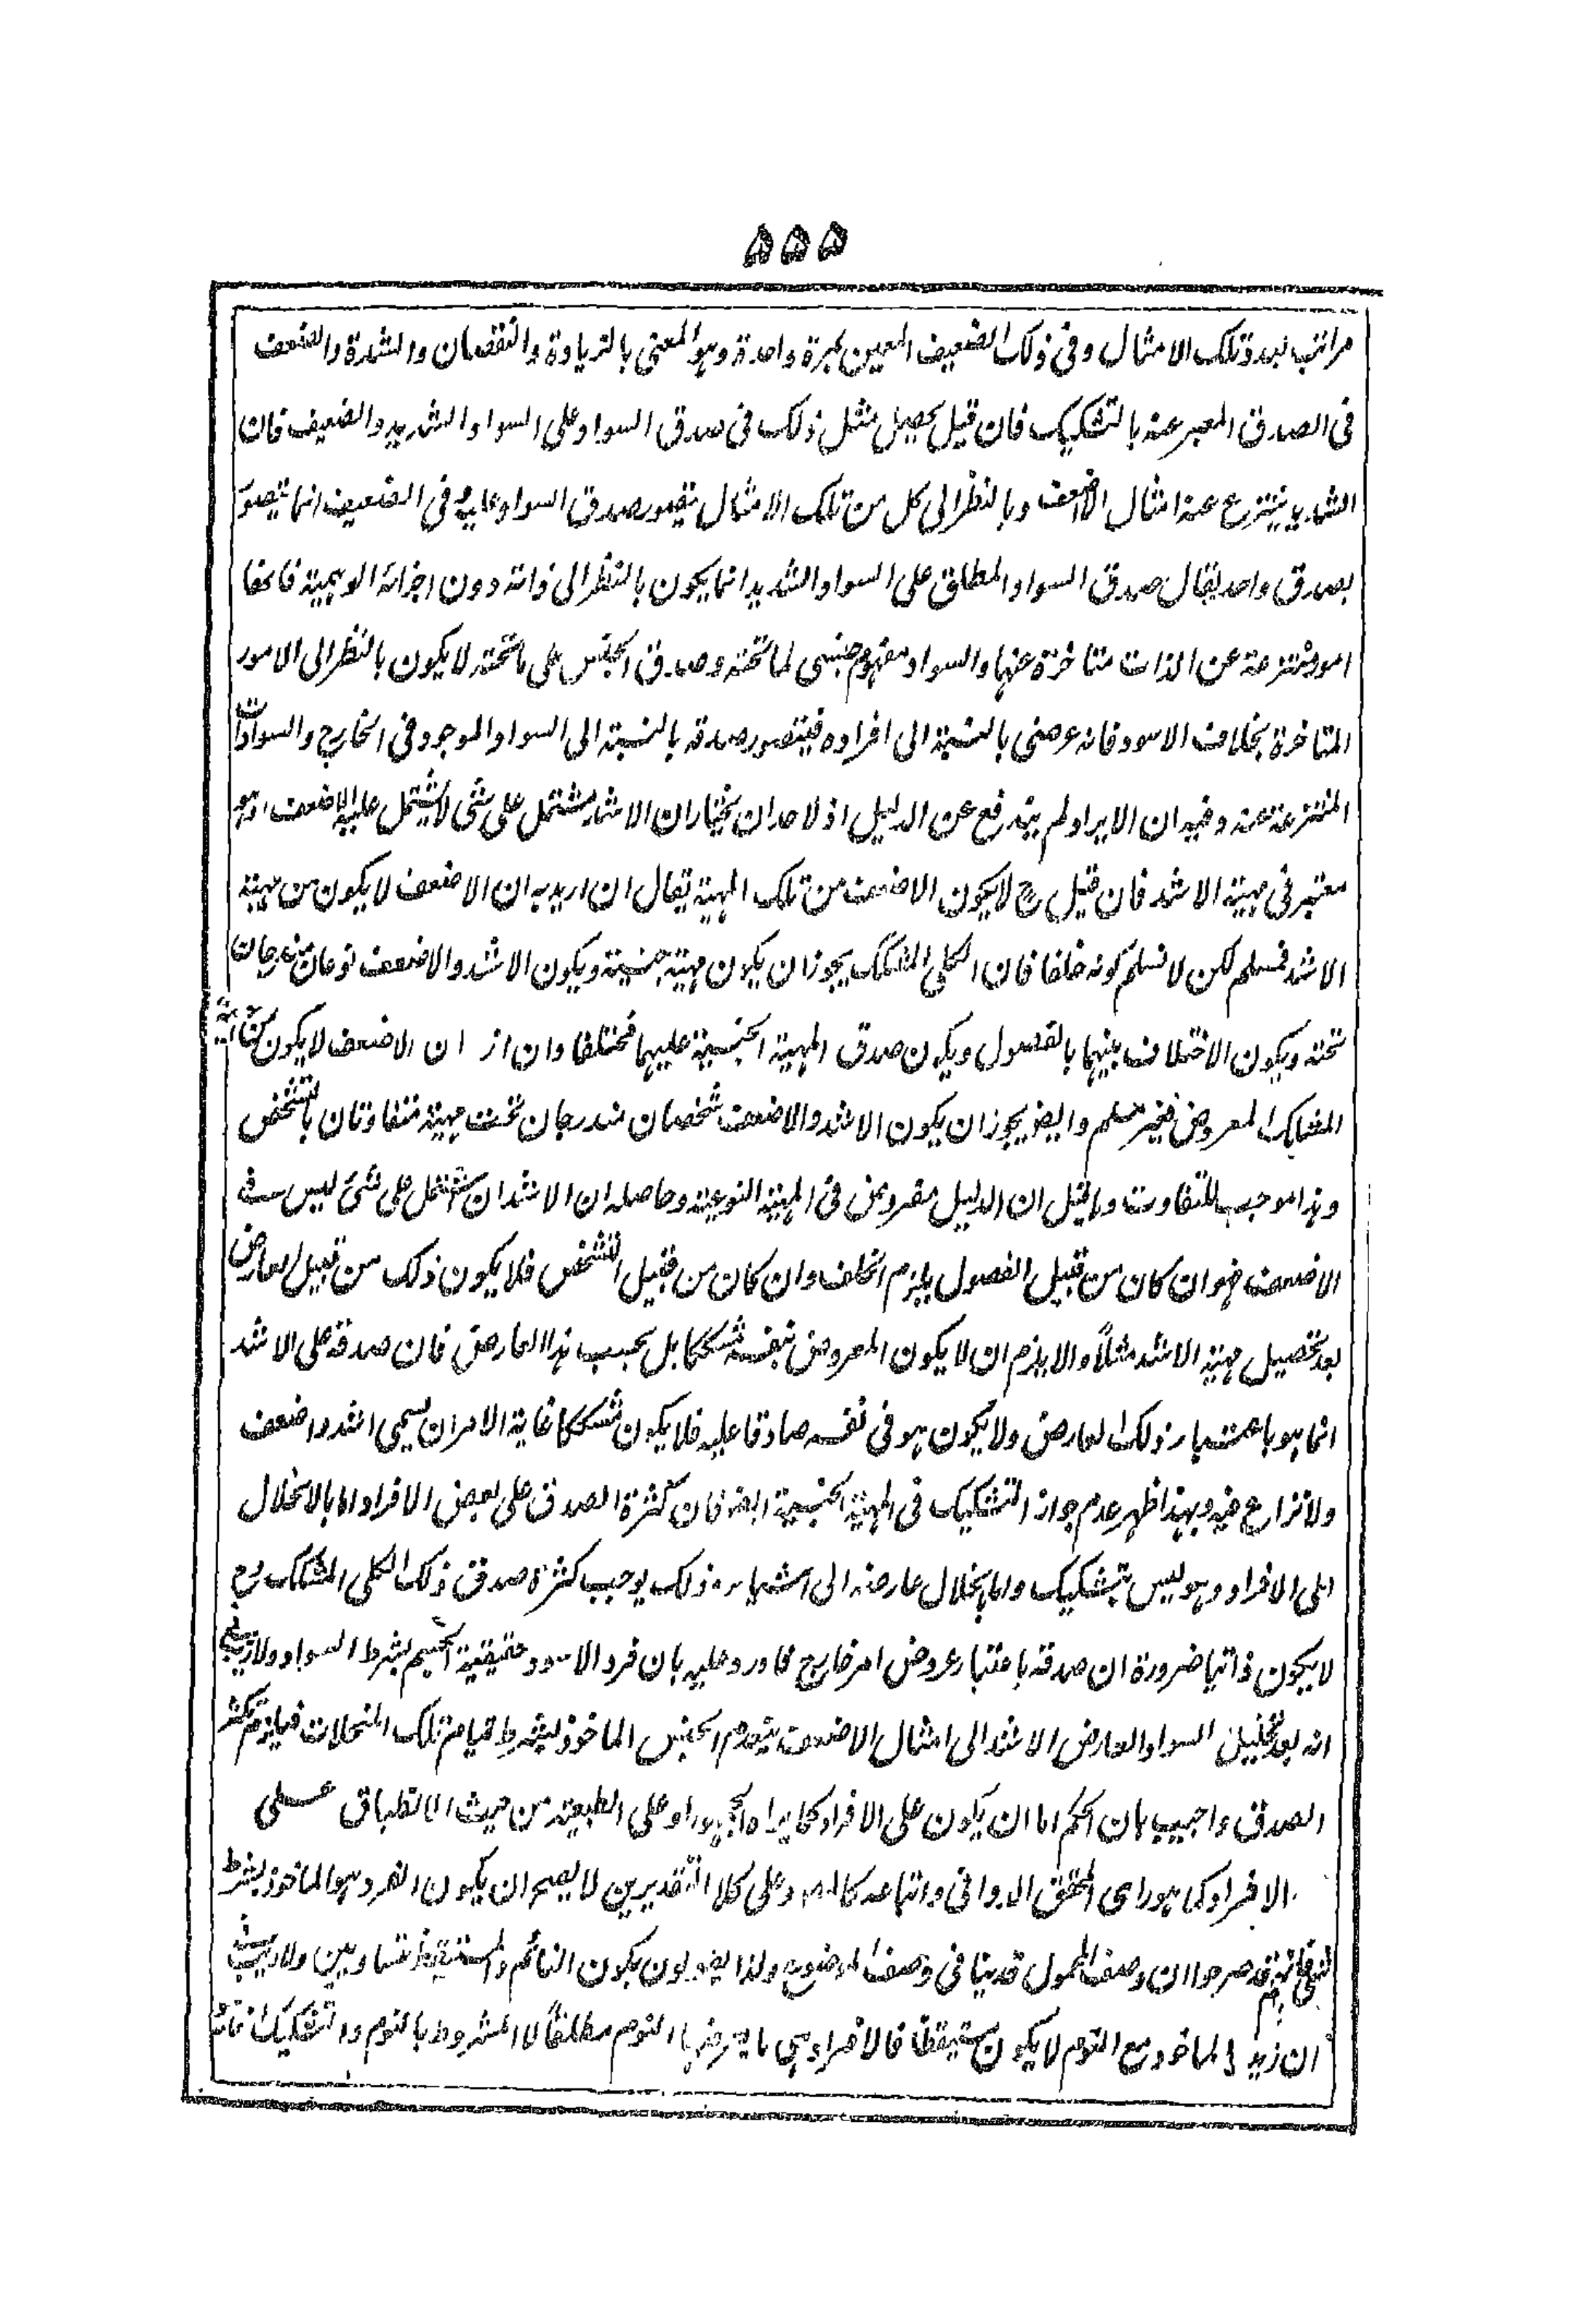 ۵۵۵
مراتب بعدة تلك الامثال وفى ذلك الضعيف المعين بمرة واحدة وهو المعنى بالزيادة والنقصان والشدة والضعف
فى الصدق المعبر عنه بالتشكيك فان قيل يحصل مثل ذلك فى صدق السواد على السواد الشديد والضعيف فان
الشديد ينتزع عنه امثال الاضعف وبالنظر الى كل من تلك الامثال يتصور صدق السواد عليه وفى الضعيف انما يتصور
بصدق واحد يقال صدق السواد المطلق على السواد الشديد انما يكون بالنظر الى ذاته دون اجزائه الوهمية فانها
امور منتزعة عن الذات متاخرة عنها والسواد مفهوم جنسى لما تحته وصدق الجنس على ما تحته لا يكون بالنظر الى الامور
المتاخرة بخلاف الاسود فانه عرضى بالنسبة الى افراده فيتصور صدقه بالنسبة الى السواد الموجود فى الخارج والسوادات
المنتزعة عنه وفيه ان الايراد لم يندفع عن الدليل اذ لاحد ان يختار ان الاشد يشتمل على شئ لا يشتمل عليه الاضعف وهو
معتبر فى مهية الاشد فان قيل ح لا يكون الاضعف من تلك المهية يقال ان اريد به ان الاضعف لا يكون من مهية
الاشد فمسلم لكن لا نسلم كونه خلفا فان الكلى المشكك يجوز ان يكون مهية جنسية ويكون الاشد والاضعف نوعان مندرجان
تحته ويكون الاختلاف بينهما بالفصول ويكون صدق المهية الجنسية عليهما مختلفا وان ان الاضعف لا يكون
المشكك المعروض فغير مسلم وايضا يجوز ان يكون الاشد والاضعف شخصان مندرجان تحت مهية متفاوتان بالتشخص
وهذا موجب للتفاوت وما قيل ان الدليل مفروض فى المهية النوعية وحاصله ان الاشد ان اشتمل على شئ ليس فى
الاضعف فهو ان كان من قبيل الفصول يلزم الخلف وان كان من قبيل التشخص فلا يكون ذلك من قبيل العارض
بعد تحصيل مهية الاشد مثلاً والا يلزم ان لا يكون المعروض بنفسه مشككا بل بحسب هذا العارض فان صدقه على الاشد
انما هو باعتبار ذلك العارض ولا يكون هو فى نفسه صادقا عليه فلا يكون مشككا غاية الامر ان يسمى اشد واضعف
ولا نزاع فيه وبهذا ظهر عدم جواز التشكيك فى المهية الجنسية ايضا فان كثرة الصدق على بعض الافراد اما بالانحلال
الى الافراد وهو ليس بتشكيك واما بانحلال عارضه الى وذلك يوجب كثرة صدق ذلك الكلى المشكك وح
لا يكون ذاتيا ضرورة ان صدقه باعتبار عروض امر خارج فاورد عليه بان فرد الاسود حقيقية الجسم بشرط السواد ولا ريب فى
انه بعد تحليل السواد العارض الاشد الى امثال الاضعف يتعدد الجنس الماخوذ بشرط قيام تلك المنحلات فيلزم تكثر
الصدق واجيب بان الحكم اما ان يكون على الافراد كما يراه الجمهور او على الطبيعة من حيث الانطباق على
الافراد كما هو راى المحقق الدوانى واتباعه وعلى كلا التقديرين لا يصح ان يكون الفرد هو الماخوذ بشرط
شئ فانهم قد صرحوا ان وصف المحمول قد ينافى وصف الموضوع ولذا يكون النائم والمستيقظ متساويين ولا ريب فى
ان زيد الماخوذ مع النوم لا يكون مستيقظا فالافراد هى ما يعرضها النوم مطلقاً لا المشروط بالنوم والتشكيك